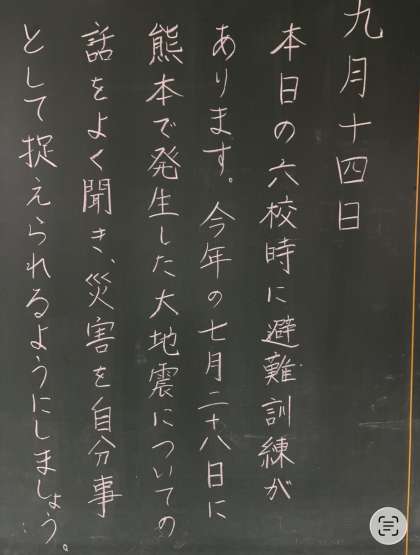 九月十四日
本日の六校時に避難訓練が
あります。今年の七月二十八日に
熊本で発生した大地震についての
話をよく聞き、災害を自分事
として捉えられるようにしましょう。